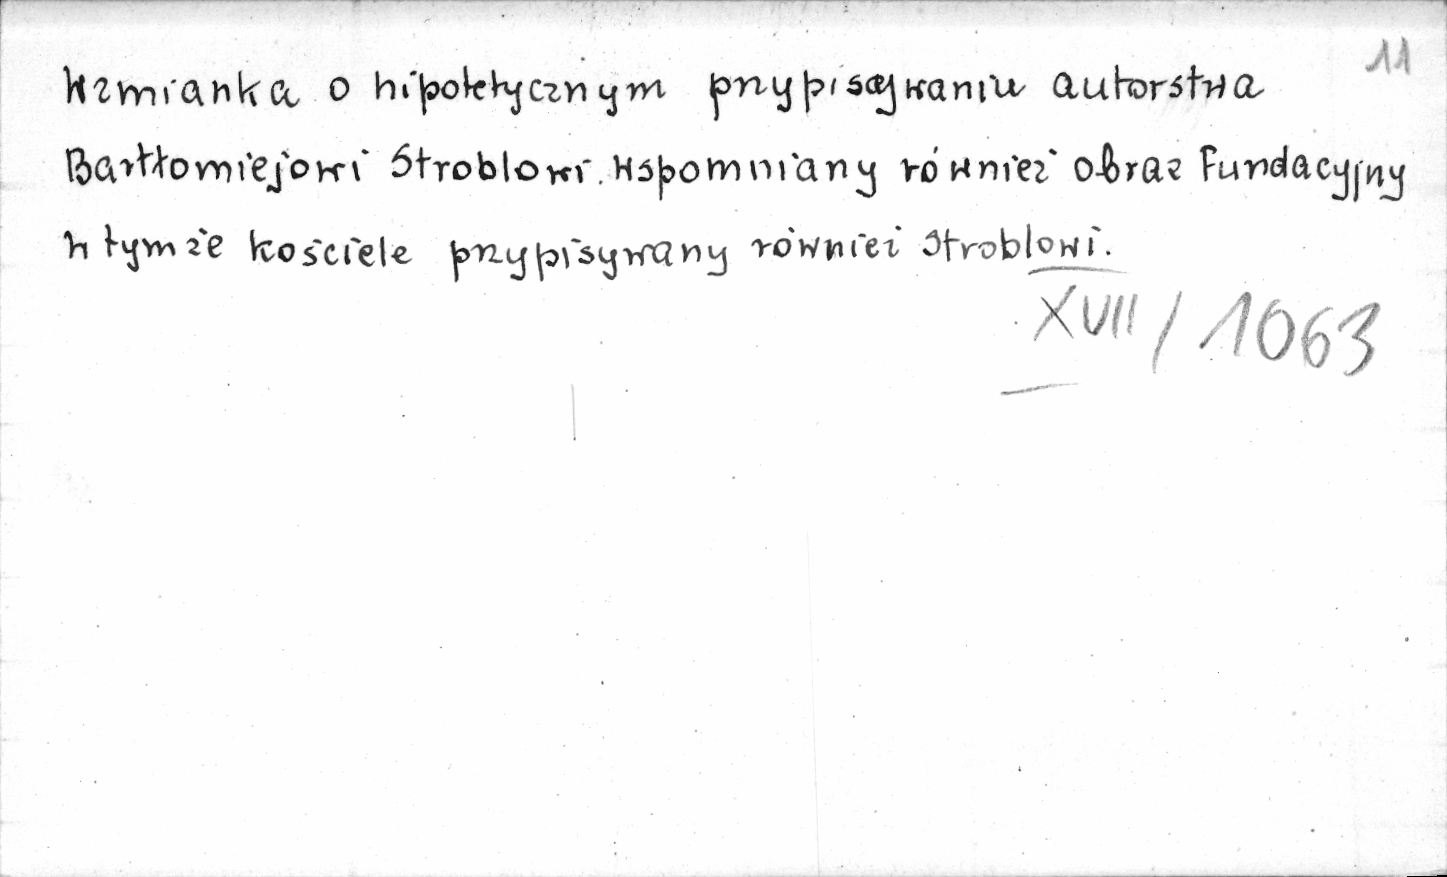 11
Wzmianka o hipotetycznym przypisywaniu autorstwa
Bartłomiejowi Stroblowi. Wspomniany również obraz Fundacyjny
w tymże kościele przypisywany również Stroblowi.
XVII / 1063